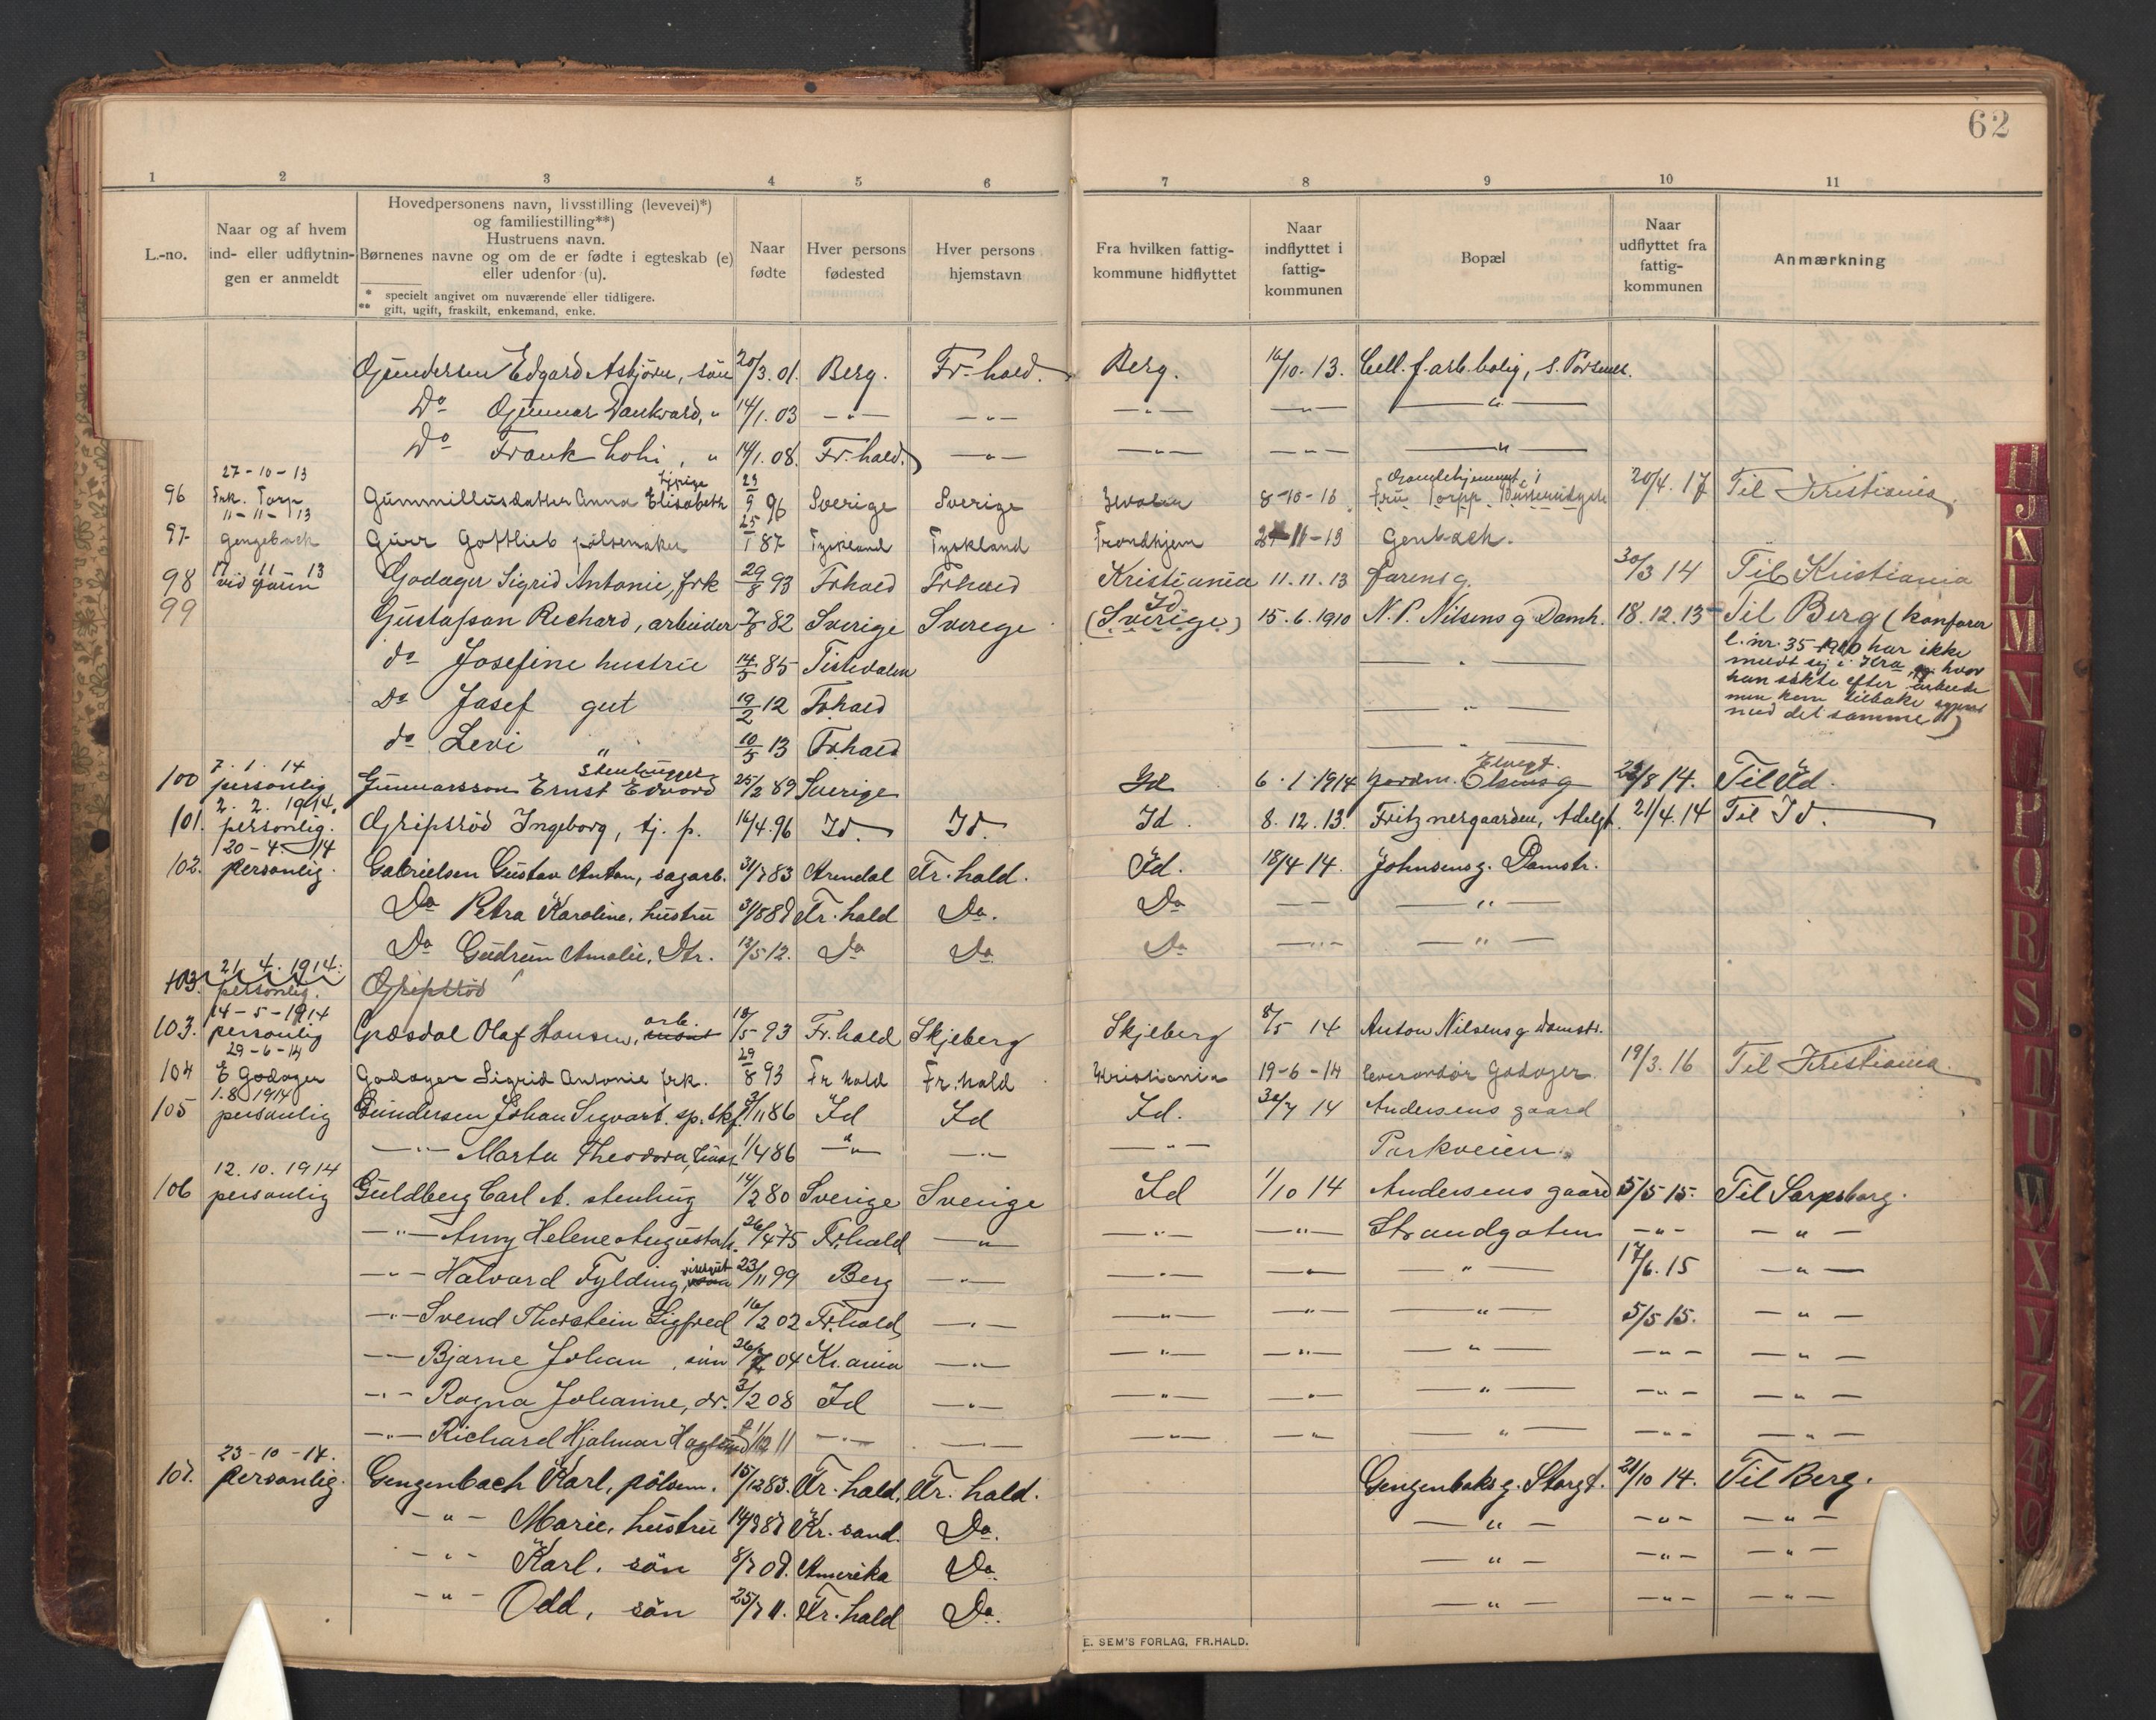 62
1 2 3 4 5 6 7 8 9 10 11
L.-no.
Naar og af hvem ind- eller udflytnin- gen er anmeldt
Hovedpersonens navn, livsstilling (levevei)*)
og familiestilling**)
Hustruens navn.
Børnenes navne og om de er fødte i egteskab (e)
eller udenfor (u).
* specielt angivet om nuværende eller tidligere.
** gift, ugift, fraskilt, enkemand, enke.
Naar fødte
Hver persons fødested
Hver persons hjemstavn
Fra hvilken fattig- kommune hidflyttet
Naar indflyttet i fattig- kommunen
Bopæl
Naar udflyttet fra fattig- kommunen
Anmærkning
Gundersen Edgard Asbjörn, sön 20/3.01. Berg. Fr.hald. Berg. 16/10.13. Cell.f.arb.bolig, s.
Do Gunnar Dankvard, " 14/1.03 —"— —"— —"— —"— —"—
Do Frank , " 14/1.08. Fr.hald. —"— —"— —"— —"—
27-10-13
96 Frk. Torp Anna Elisabeth 23/9 96 Sverige Sverige 8-10-13 Fru Torpp 20/4.17 Til Kristiania
11-11-13
97 Gengebach Gürr Gottlieb pölsemaker 25/1 87 Tyskland Tyskland Trondhjem 11-13 Genbach.
11 11 13
98 Godager Sigrid Antonie, frk 29/8 93 Frhald Frhald Kristiania 11.11.13 30/3 14 Til Kristiania
99 Gustafson Richard, arbeider 7/8 82 Sverige Sverege Id (Sverige) 15.6.1910 N.P. Nilsens g Damh. 18.12.13 Til Berg (konfærer
l. nr. 35-1910 har ikke
meldt sig i Kra hvor
han søkte efter arbeide
men kom tilbake
med det samme)
do Josefine hustru 14/5 85 Tistedalen —"—
Do Josef gut 19/2 12 Frhald —"—
do Levi " 10/5 13 Frhald —"—
7.1.14 stenhugger Elvegt.
100 personlig Gunnarsson Ernst Edvard 25/2 89 Sverige Id 6.1.1914 Olsens g 22/8 14. Til Id.
2. 2. 1914.
101. personlig. Gripsröd Ingeborg, tj. p. 16/4.96 Id. Id. Id. 8.12.13. Fritznergaarden, Adelgt. 21/4.14 Til Id.
20-4-14
102. Personlig. Gabrielsen Gustav Anton, sagarb. 31/7 83 Arendal Fr.hald. Id. 18/4 14. Johnsens g. Damstr.
Do Petra Karoline, hustru 31/5 88 Fr.hald Do. Do — — —"—
Do Gudrun Amalie, Dtr. 13/5 12. Do Do Do —"— —"—
21. 4. 1914.
103. personlig. Gripsröd
14-5-1914 arb.
103. personlig Græsdal Olaf Hansen, 10/5 93 Fr.hald Skjeberg Skjeberg 8/5 14 Anton Nilsens g Damstr.
29-6-14
104 E Godager Godager Sigrid Antonie frk. 29/8 93 Fr hald Fr.hald Kristiania 19-6-14 Leverandör Godager 19/3.16 Til Kristiania.
1.8 1914
105 personlig Gundersen Johan Sigvart. 3/11 86 Id Id Id. 30/7 14 Andersens gaard
—"— Marta Theodora, hust. 1/4 86 —"— —"— —"— Parkveien.
12.10.1914
106 personlig Guldberg Carl A. stenhug 14/2 80 Sverige Sverige Id 1/10 14 Andersens gaard 5/5 15. Til Sarpsborg.
—"— Amy Helene Augusta h. 26/4 75 Fr.hald —"— —"— —"— Strandgaten —"— —"—
—"— Halvard Fylding, visergut 23/11 99 Berg —"— —"— —"— —"— 17/6.15 —"—
—"— Svend Thorstein Sigfred 16/2 02 Fr.hald —"— —"— —"— —"— 5/5 15. —"—
—"— Bjarne Johan, sön 26/ 04 Kr.ania —"— —"— —"— —"— —"— —"—
—"— Ragna Johanne, dr. 3/2 08 Id —"— —"— —"— —"— —"— —"—
—"— Richard Hjalmar 1/12 11 —"— —"— —"— —"— —"— —"— —"—
23-10-14.
107. Personlig. Gengenbach Karl, pölsem. 15/12 83. Fr.hald. Fr. hald. Gengenbaks g. Storgt. 21/10 14. Til Berg.
—"— Marie, hustru 14/8 88 Kr.sand. Do. —"— —"— —"—
—"— Karl, sön 8/7 08. Amerika Do —"— —"— —"—
—"— Odd, sön 25/7 11. Fr.hald Do. —"— —"— —"—
E. SEM'S FORLAG, FR.HALD.
H
J
K
L
M
N
O
P
Q
R
S
T
U
W
X
Y
Z
Æ
Ø